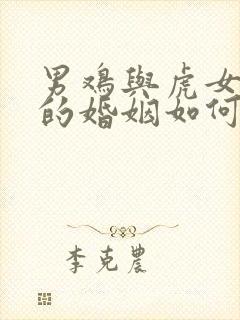 男鸡與虎女
的婚姻如何
李克農